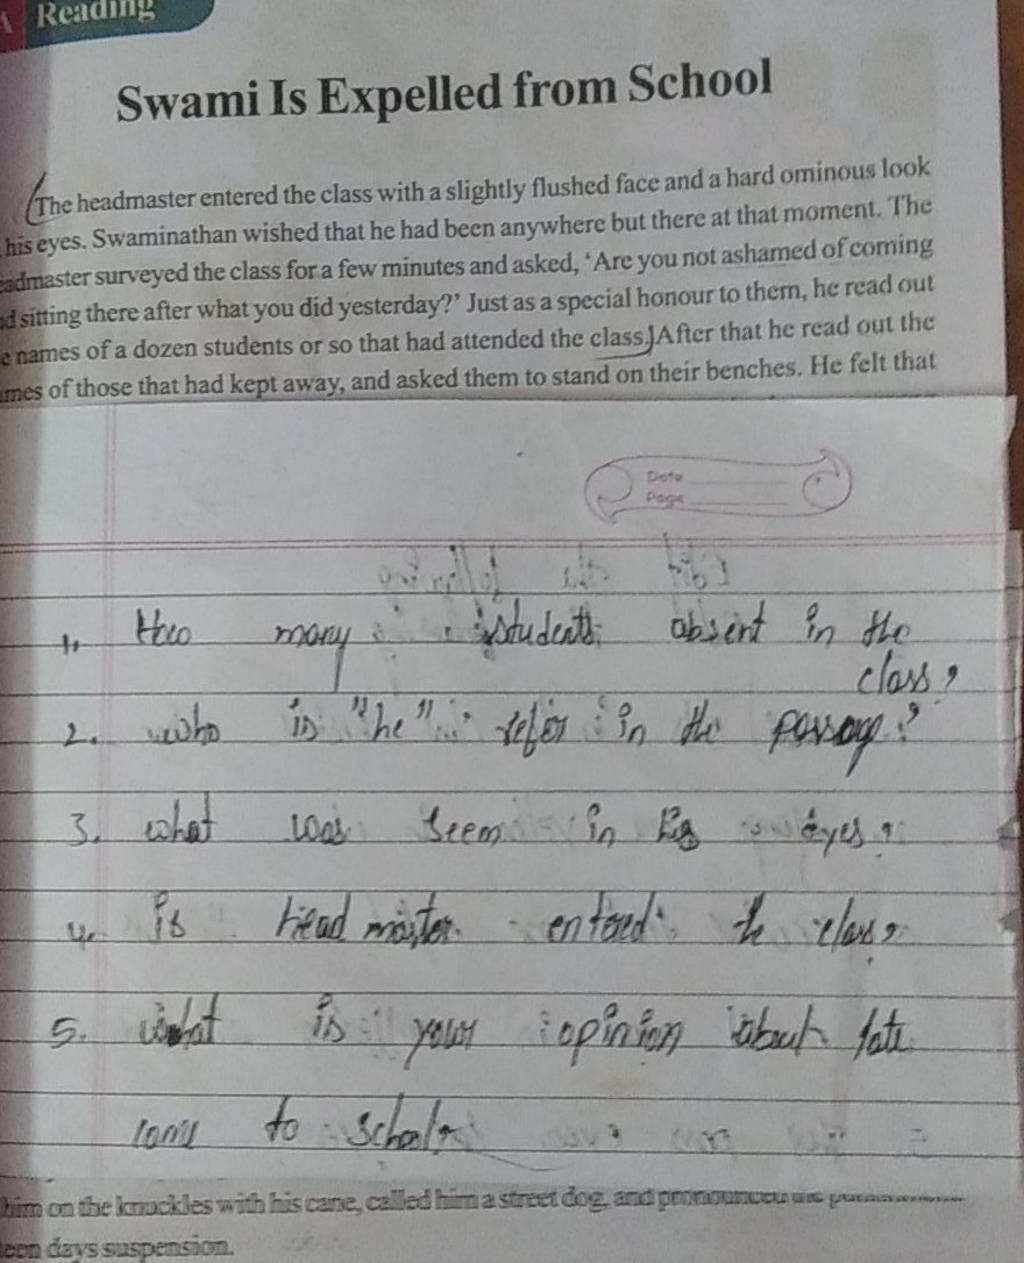 Reading
Swami Is Expelled from School
The headmaster entered the class with a slightly flushed face and a hard ominous look
his eyes. Swaminathan wished that he had been anywhere but there at that moment. The
eadmaster surveyed the class for a few minutes and asked, ‘Are you not ashamed of coming
d sitting there after what you did yesterday?’ Just as a special honour to them, he read out
e names of a dozen students or so that had attended the class. After that he read out the
ames of those that had kept away, and asked them to stand on their benches. He felt that
Date
Page
1. How many students absent in the
class?
2. who is "he" refer in the passage?
3. what was seem in his eyes?
4. is Head master entered the class?
5. what is your opinion about late
come to school?
him on the knuckles with his cane, called him a street dog, and pronounced the
teen days suspension.